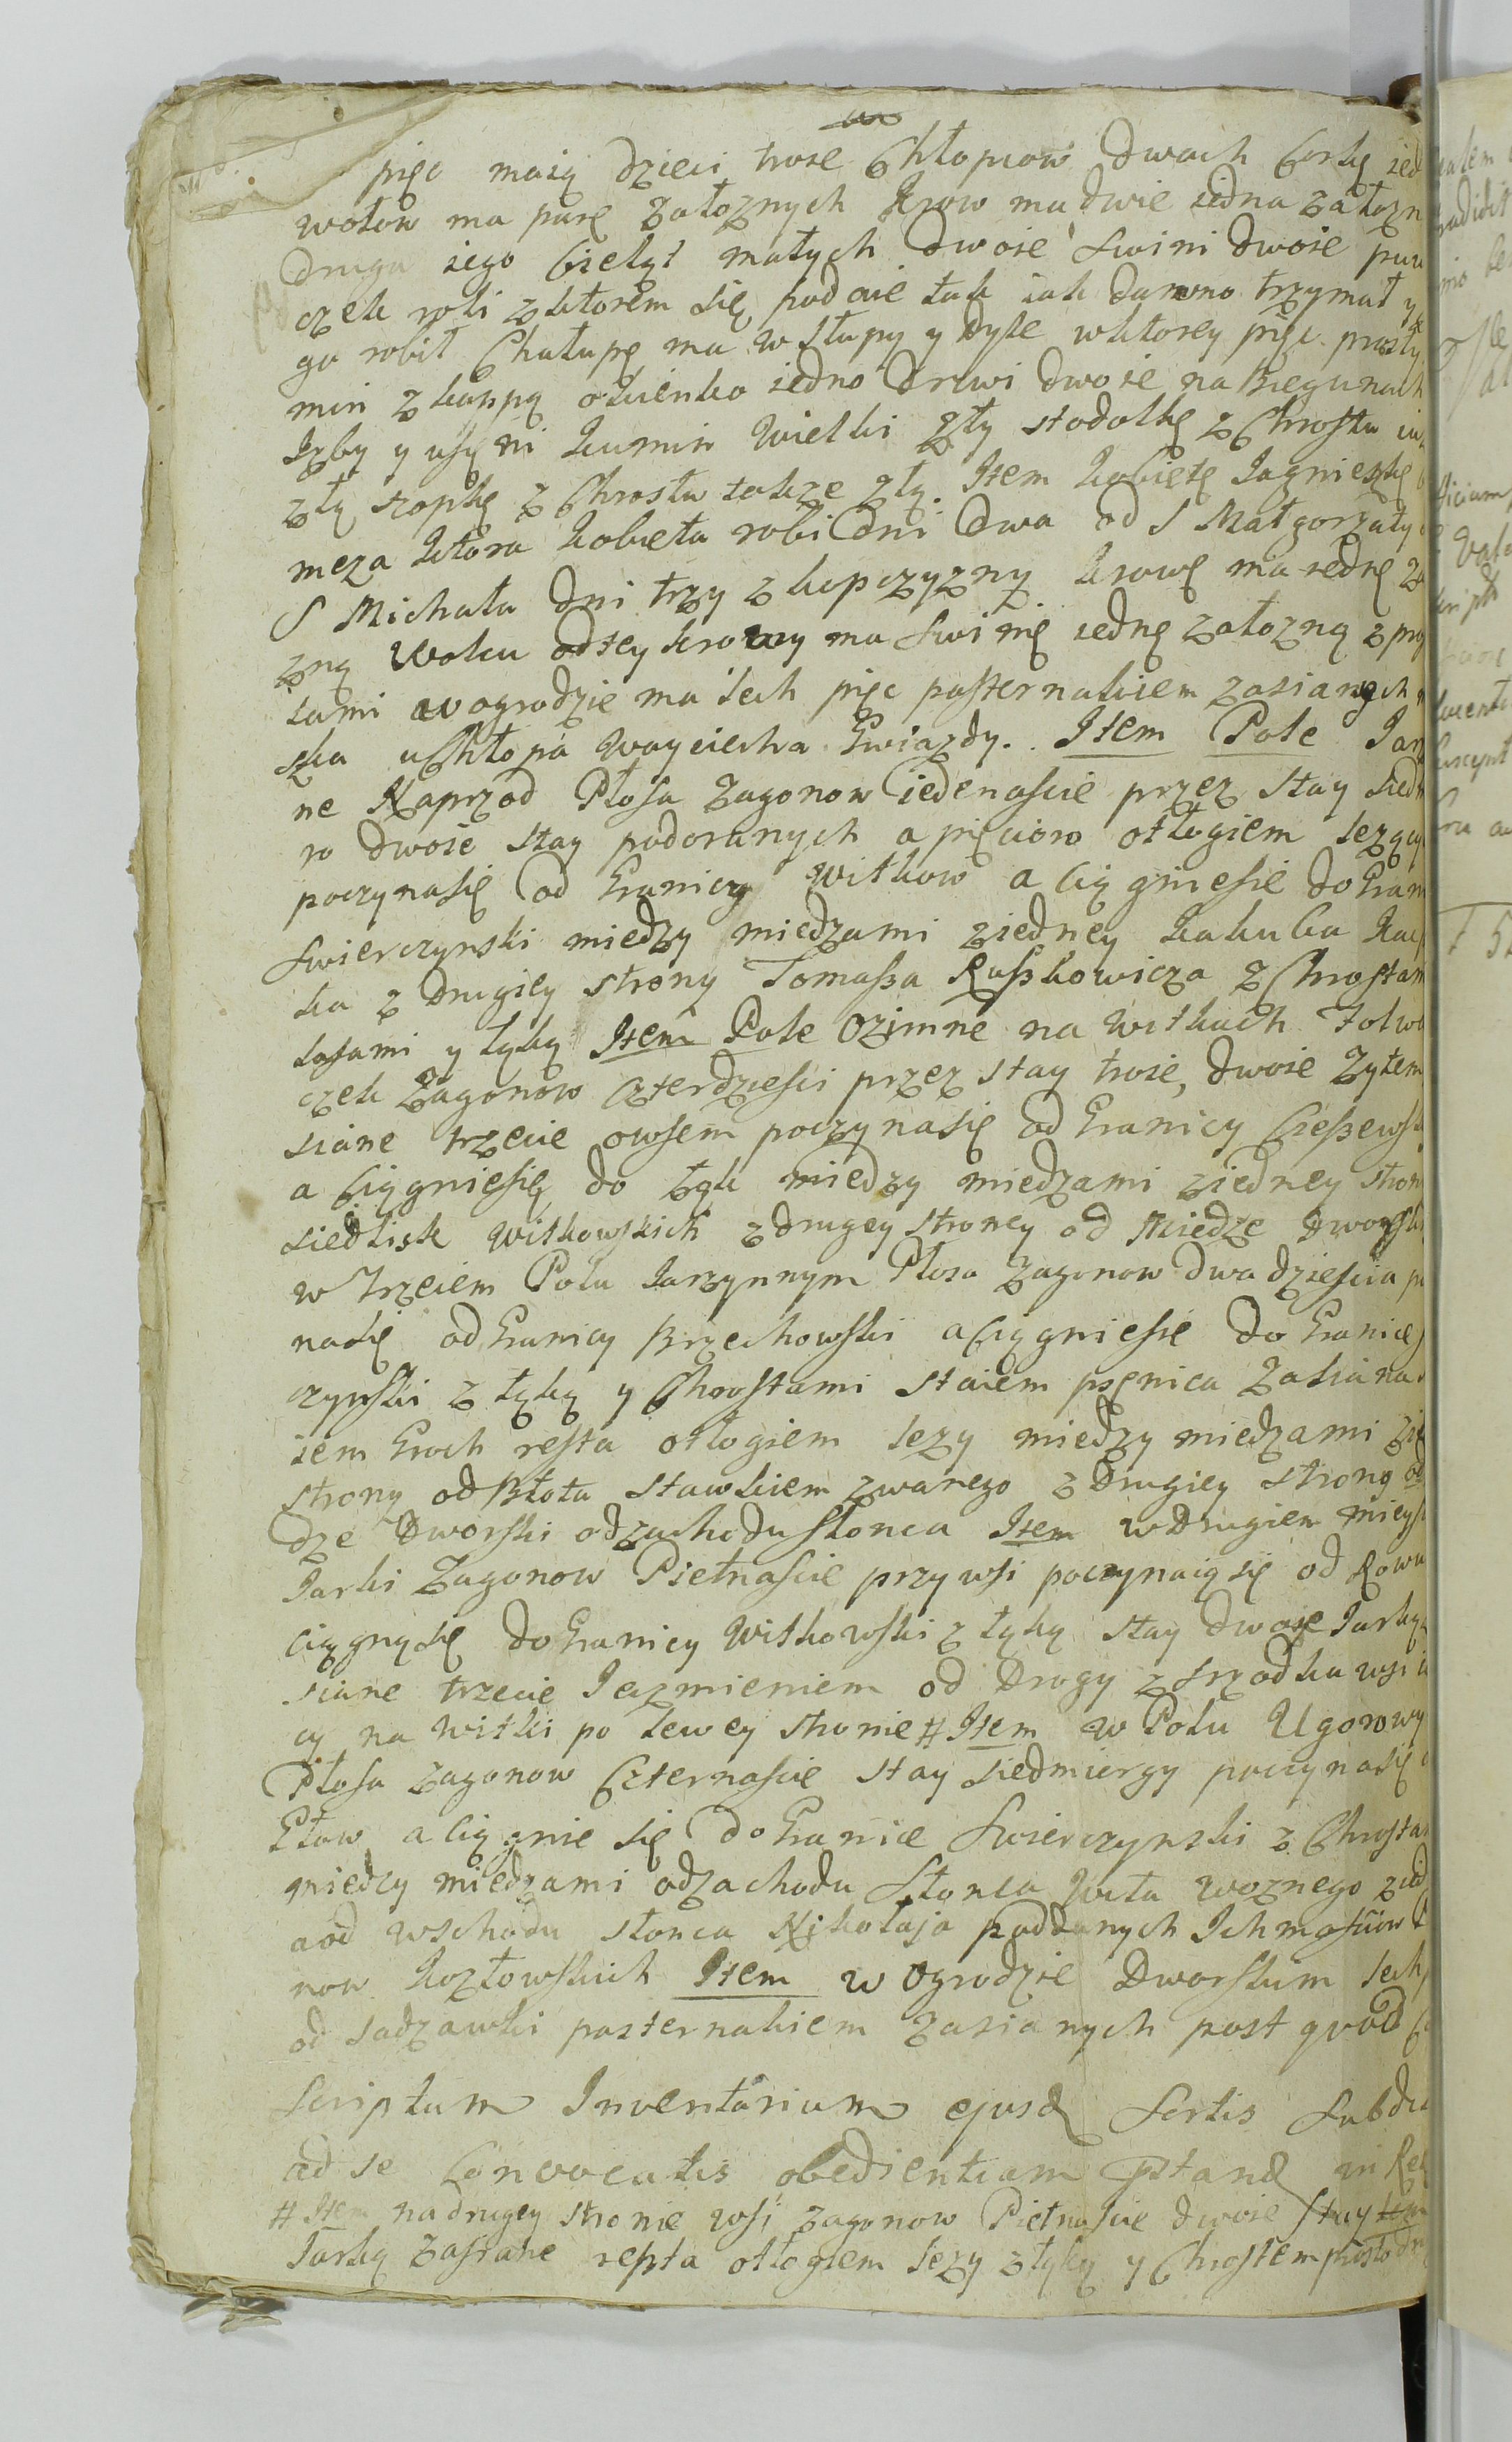 pięc maią dzieci troie Chłopcow dwoch Corkę ied
wołow ma parę załoznych Krow ma dwie iedna załozn
druga iego Cieląt małych dwoie Swini dwoie
czek roli z ktorem się podaie tak iak dawno trzymał y
go robił Chałupę ma w słupy y dyle wktorey piec prosty
min z kappą okienko iedno drzwi dwoie na Biegunach
Izby y usieni kumin Wielki zły stodołkę z Chrostu
złą szopkę z Chrostu takze złą. Item kobietę Iagnieszkę
męza ktora kobieta robi dni dwa od S Małgorzaty
S Michała dni trzy z kopczyzny krowę ma iednę za
zną Wołku odtey krowy ma Swinię iednę załozną z pro
tami w ogrodzie ma lech pięc pasternakiem zasianych
szka u Chłopa Woyciecha Gwiazdy. Item Pole Iarz
ne Naprzod Płosa Zagonow iedenascie przez stay siedm
ro dwoie stay podoranych a pięcioro odłogiem lezący
poczynasię od Granicy Witkow a Ciągniesie do Gran
Swierczynski miedzy miedzami ziedney Iakuba Kac
ka z drugiey strony Tomasza Ruszkowicza z Chrostam
losami y łąką Item Pole Ozimne na Witkach Folwa
czek Zagonow czterdziesci przez stay troie, dwoie Zytem
siane trzecie owsem poczynasię od Granicy Cieszews
a Ciągniesię do łąk miedzy miedzami ziedney stron
siedlisk Witkowskich zdrugey stroney od Miedze dworsk
w Trzeciem Polu Iarzynnym Płosa Zagonow dwadziescia
nasię od Granicy Brzechowski a Ciągniesie do Granice
czynski z łąką y Chrostami staiem psęnica Zasiana
iem Groch resta odłogiem lezy miedzy miedzami zie
strony od Błota stawkiem zwanego z drugiey strony od
dze dworski odzachodu słonca Item wdrugiem mieys
Iarki Zagonow Pietnascie przy wsi poczynaią się od Rowu
ciągnąsię do Granicy Witkowski z łąką stay dwoie Iarką
siane trzecie Ięczmieniem od drogy z srzodka wsi
cy na Witki po lewey stronie # Item w Polu Ugorowy
Płosa Zagonow Czternascie stay siedmiergy poczynasię
a ciągnie się do Granice Swierczynski z Chrosta
miedzy miedzami odzachodu Słonca Wita woznego
a od wschodu słonca Mikołaja poddanych Ichmosciow
now Kozłowskich Item w Ogrodzie dworskim lech
od sadzawki pasternakiem zasianych post quod
scriptum Inventarium ejusd Sortis Subd
ad se Convocatis obedientiam in
# Item na drugey stronie wsi zagonow Pietnascie dwoie stay
Iarką Zasiane reszta odłogiem lezy z łąką y Chrostem